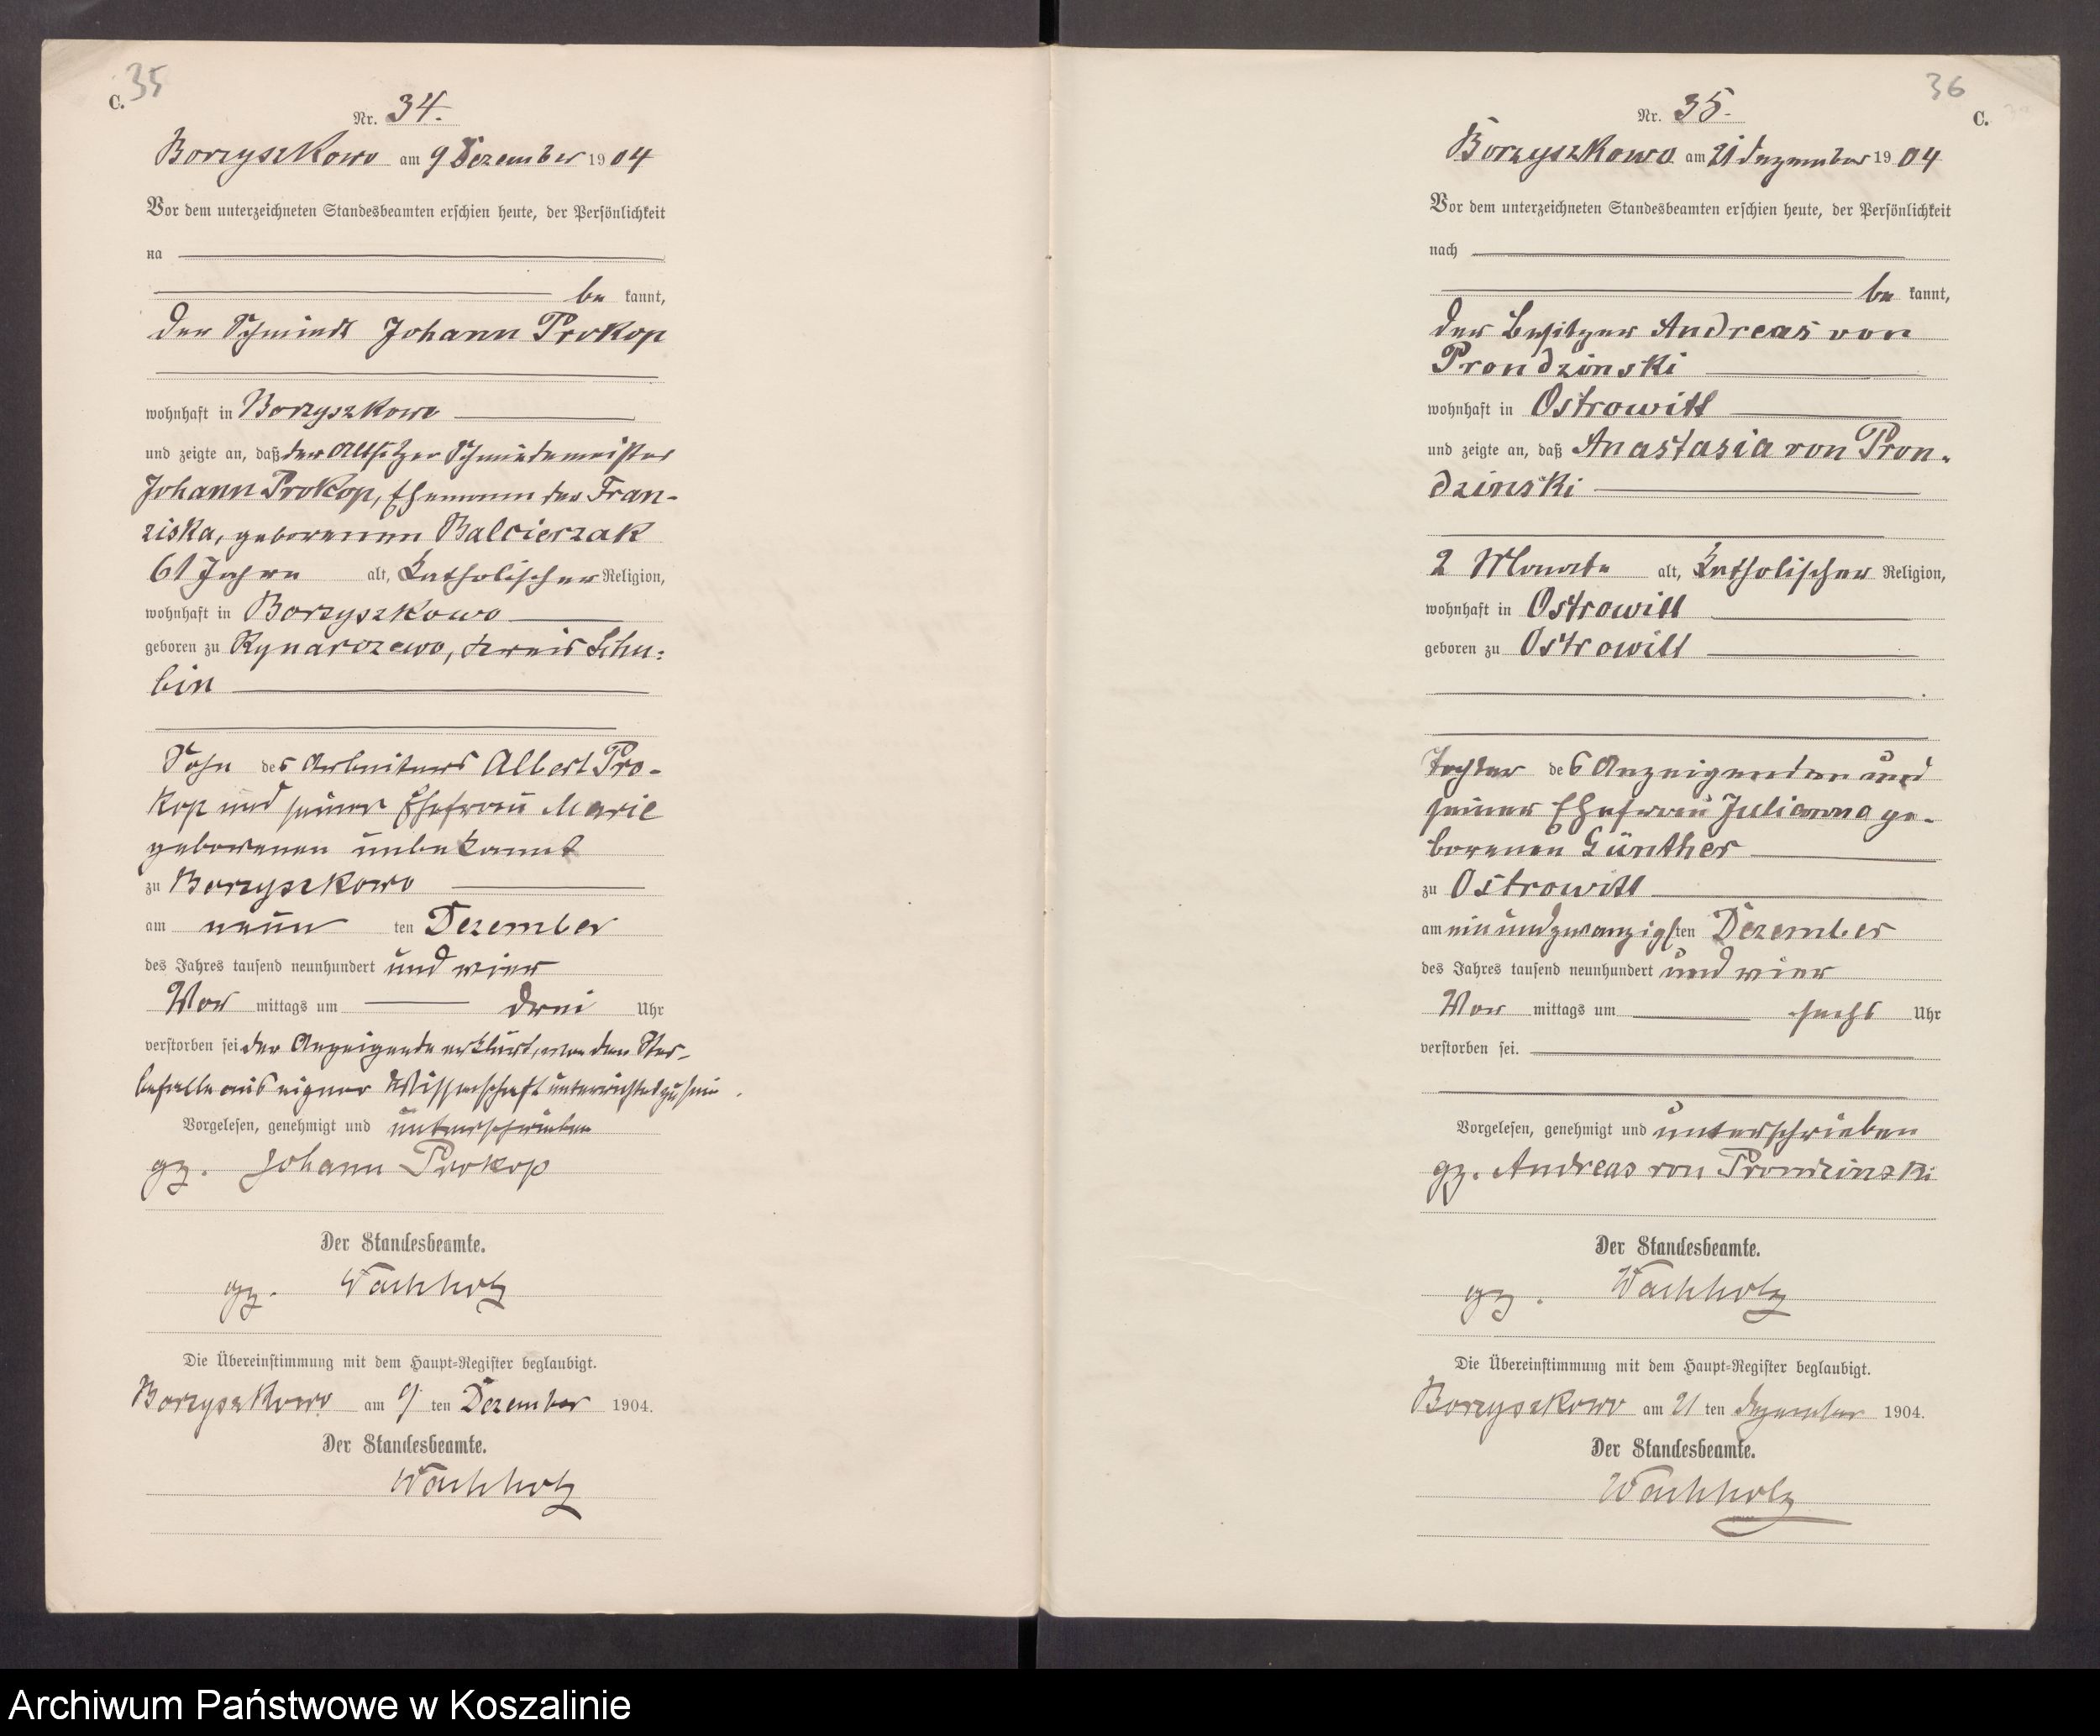 35
C.
Nr. 34.
Borzyszkowo am 9 Dezember 1904
Vor dem unterzeichneten Standesbeamten erschien heute, der Persönlichkeit
na
be kannt,
der Schmiedt Johann Prokop
wohnhaft in Borzyszkowo
und zeigte an, daß der Altsitzer Schmiedemeister
Johann Prokop, Ehemann der Fran-
ziska, geborenen Balcierzak
61 Jahre alt, katholischer Religion,
wohnhaft in Borzyszkowo
geboren zu Rynarczewo, Kreis Schu:
bin
Sohn des Arbeiters Albert Pro-
kop und seiner Ehefrau Marie
geborenen unbekannt
zu Borzyszkowo
am neun ten Dezember
des Jahres tausend neunhundert und vier
Vor mittags um drei Uhr
verstorben sei der Anzeigende erklärt, von dem Ster-
befalle aus eigner Wissenschaft unterrichtet zu sein.
Vorgelesen, genehmigt und unterschrieben
gz. Johann Prokop
Der Standesbeamte.
gz. Wachholz
Die Übereinstimmung mit dem Haupt-Register beglaubigt.
Borzyszkowo am 9 ten Dezember 1904.
Der Standesbeamte.
Wachholz
36
C.
Nr. 35.
Borzyszkowo am 21 Dezember 1904
Vor dem unterzeichneten Standesbeamten erschien heute, der Persönlichkeit
nach
be kannt,
der Besitzer Andreas von
Prondzinski
wohnhaft in Ostrowitt
und zeigte an, daß Anastasia von Pron-
dzinski
2 Monate alt, katholischer Religion,
wohnhaft in Ostrowitt
geboren zu Ostrowitt
Tochter des Anzeigenden und
seiner Ehefrau Julianna ge-
borenen Günther
zu Ostrowitt
am einundzwanzigsten Dezember
des Jahres tausend neunhundert und vier
Vor mittags um sechs Uhr
verstorben sei.
Vorgelesen, genehmigt und unterschrieben
gz. Andreas von Prondzinski
Der Standesbeamte.
gz. Wachholz
Die Übereinstimmung mit dem Haupt-Register beglaubigt.
Borzyszkowo am 21 ten Dezember 1904.
Der Standesbeamte.
Wachholz
Archiwum Państwowe w Koszalinie